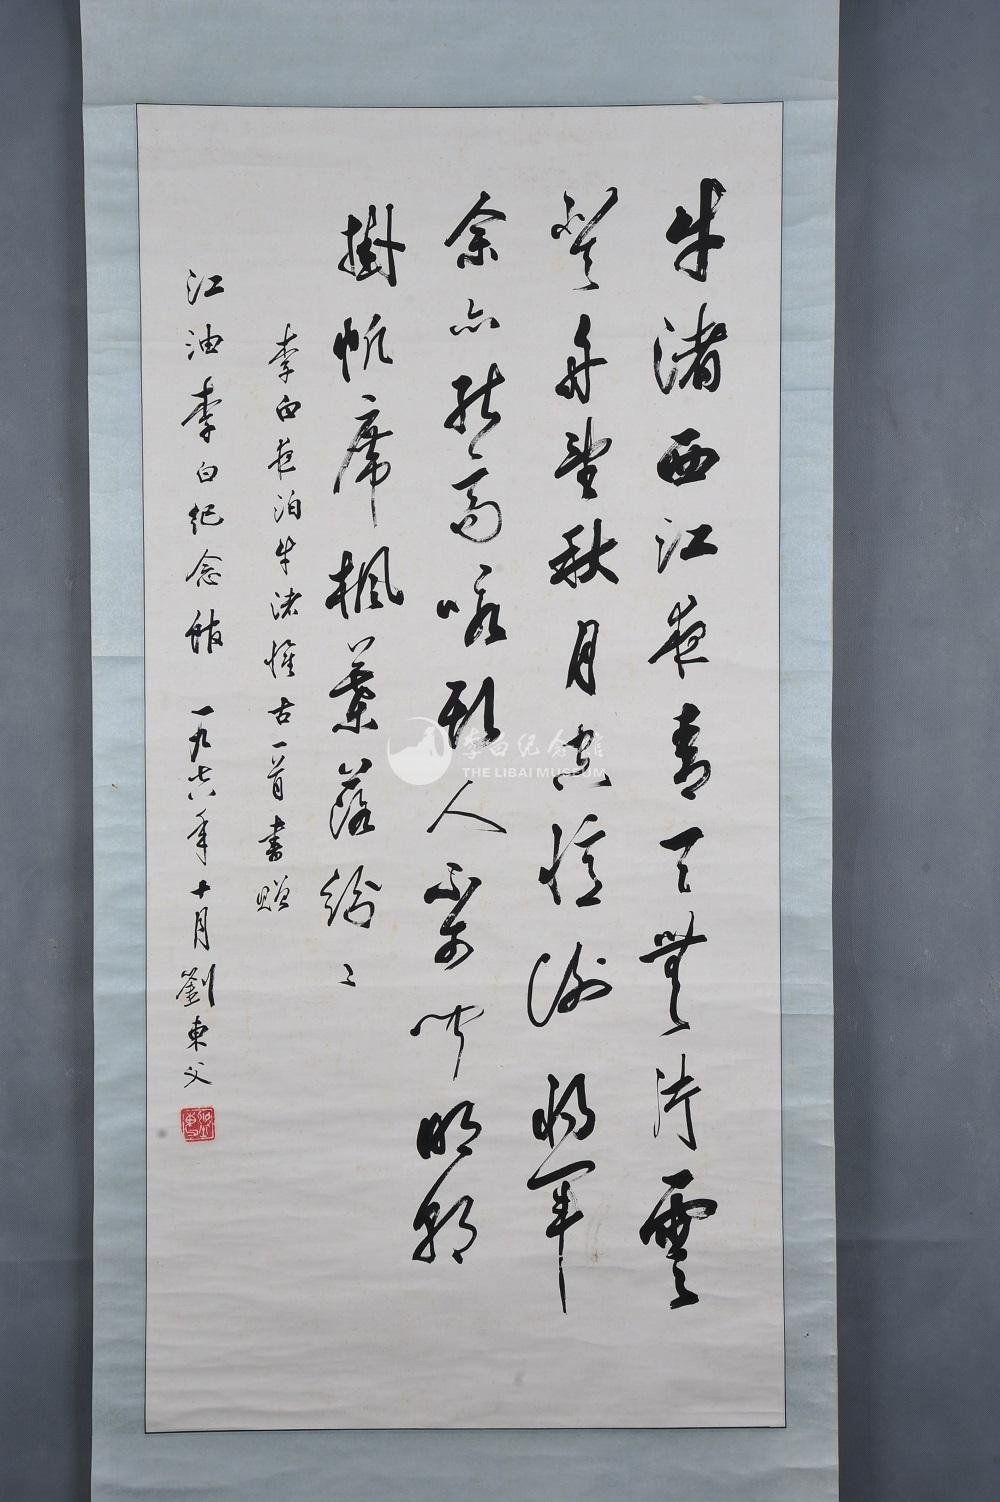 牛渚西江夜青天無片雲
登舟望秋月空憶謝將軍
余亦能高詠斯人不可聞明朝
掛帆席楓葉落紛〻
李白夜泊牛渚懷古一首書贈
江油李白纪念館 一九七六年十月劉東父
李白纪念館
THE LIBAI MUSEUM